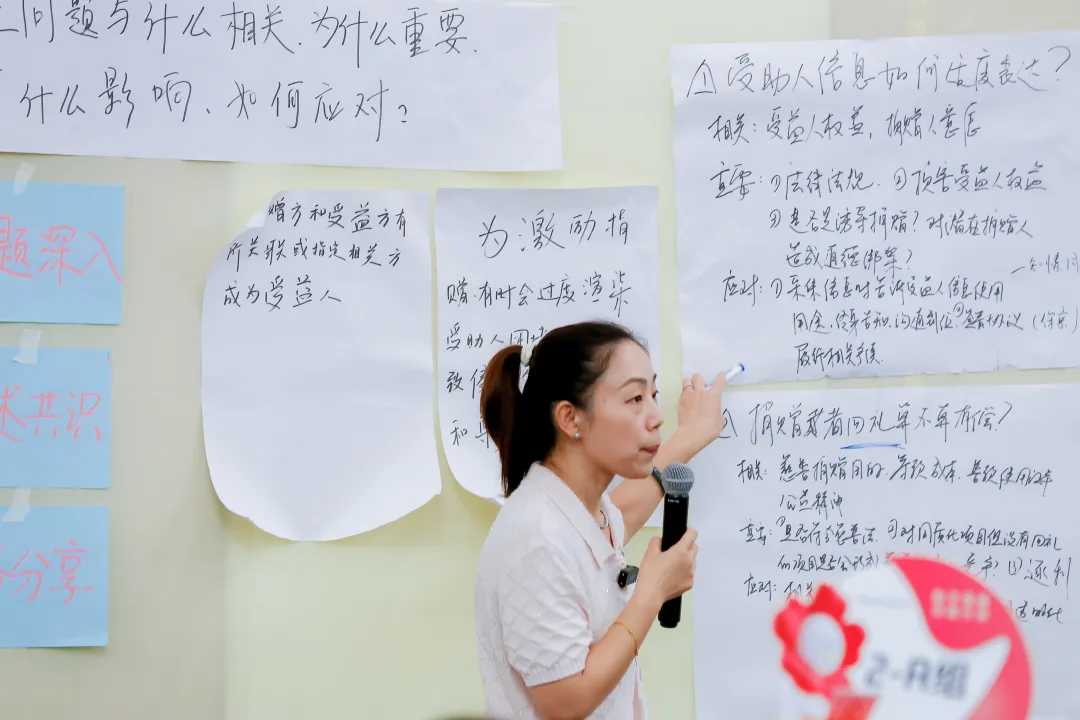 问题与什么相关、为什么重要、
什么影响、如何应对？
题深入
述共识
分享
赠方和受益方有
所关联或指定相关方
成为受益人
为激励捐
赠,有时会过度渲染
受助人困
致
和
① 受助人信息如何适度表达？
相关：受益人权益，捐赠人意愿
重要：①法律法规、②损害受益人权益
③是否是诱导捐赠？对潜在捐赠人
造成道德绑架？
应对：①采集信息时告诉受益人信息使用
用途、
履行相关手续
② 捐赠或者回礼算不算有偿？
相关：慈善捐赠目的、筹款成本、善款使用效率
公益精神
重要：①是否符合慈善法、②对同质化项目但没有回礼
的项目是否会形成
③逐利
应对：
2-A组